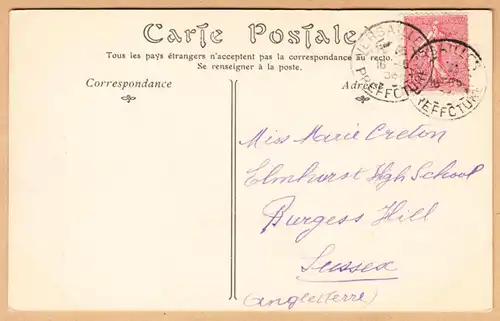 Carte Postale
Tous les pays étrangers n'acceptent pas la correspondance au recto.
Se renseigner à la poste.
Correspondance
Adresse
VERSAILLES
PREFECTURE
Miss Marie Creton
Elmhurst High School
Burgess Hill
Sussex
(Angleterre)